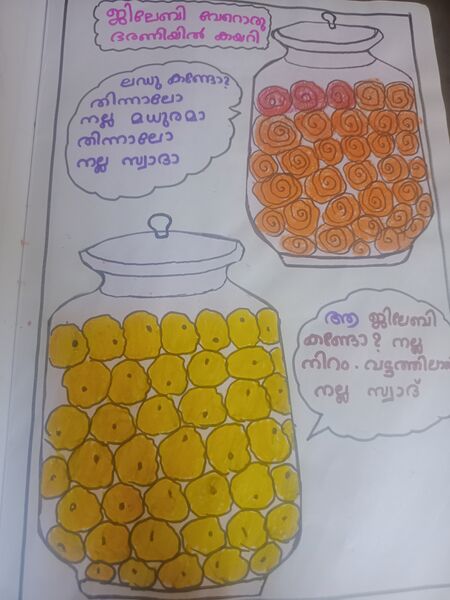 ജിലേബി വേറൊരു
ഭരണിയിൽ കയറി
ലഡു കണ്ടോ?
തിന്നാലോ
നല്ല മധുരമാ
തിന്നാലോ
നല്ല സ്വാദാ
ആ ജിലേബി
കണ്ടോ? നല്ല
നിറം. വട്ടത്തിലാണ്
നല്ല സ്വാദ്